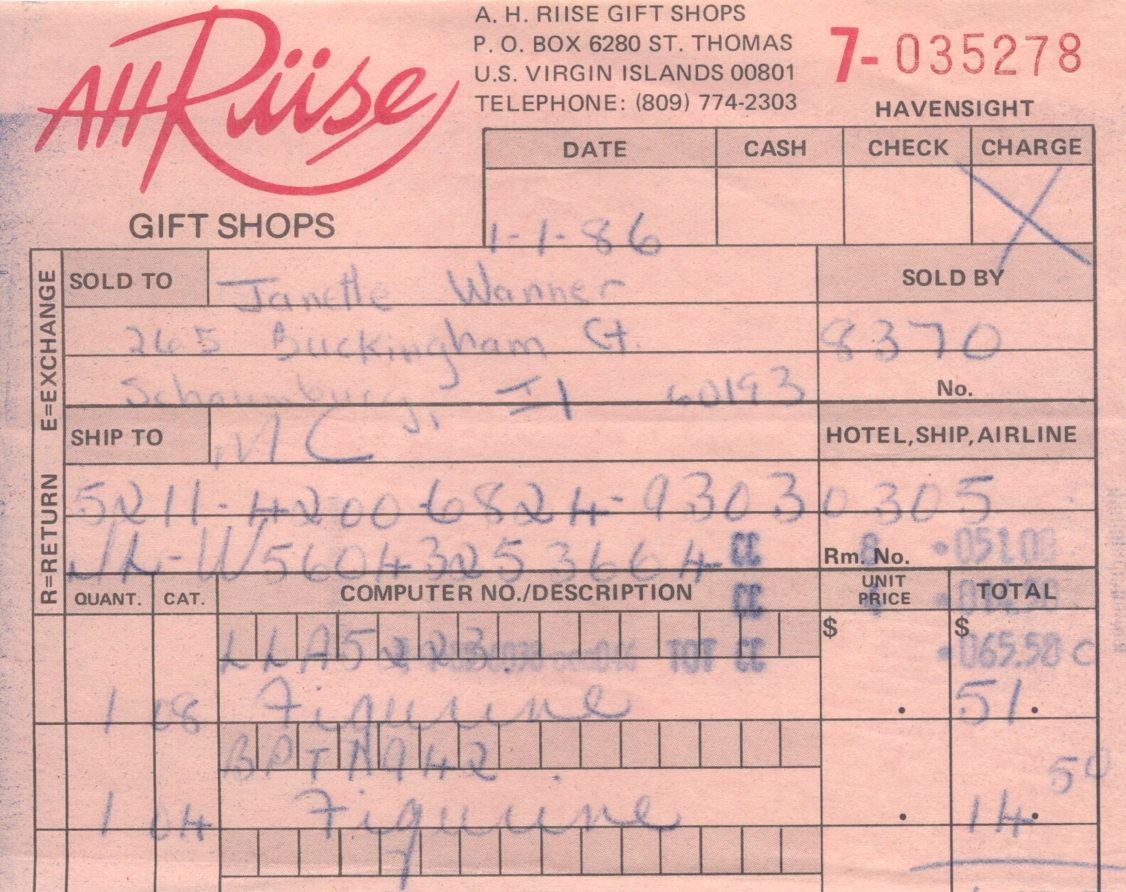 AH Riise
GIFT SHOPS
A. H. RIISE GIFT SHOPS
P. O. BOX 6280 ST. THOMAS
U.S. VIRGIN ISLANDS 00801
TELEPHONE: (809) 774-2303
7-035278
HAVENSIGHT
DATE CASH CHECK CHARGE
1-1-86 X
R=RETURN E=EXCHANGE
SOLD TO Janette Wanner SOLD BY
265 Buckingham Ct. 8370
Schaumburg, Il 60193 No.
SHIP TO MC HOTEL,SHIP,AIRLINE
5211-4200-6824-9303 0305
W56043253664 Rm. No. 051.00
QUANT. CAT. COMPUTER NO./DESCRIPTION UNIT PRICE TOTAL
LLA5223 $ $
TOT 065.50 C
1 08 Figurine . 51.
BPTN942
1 04 Figurine . 14.50